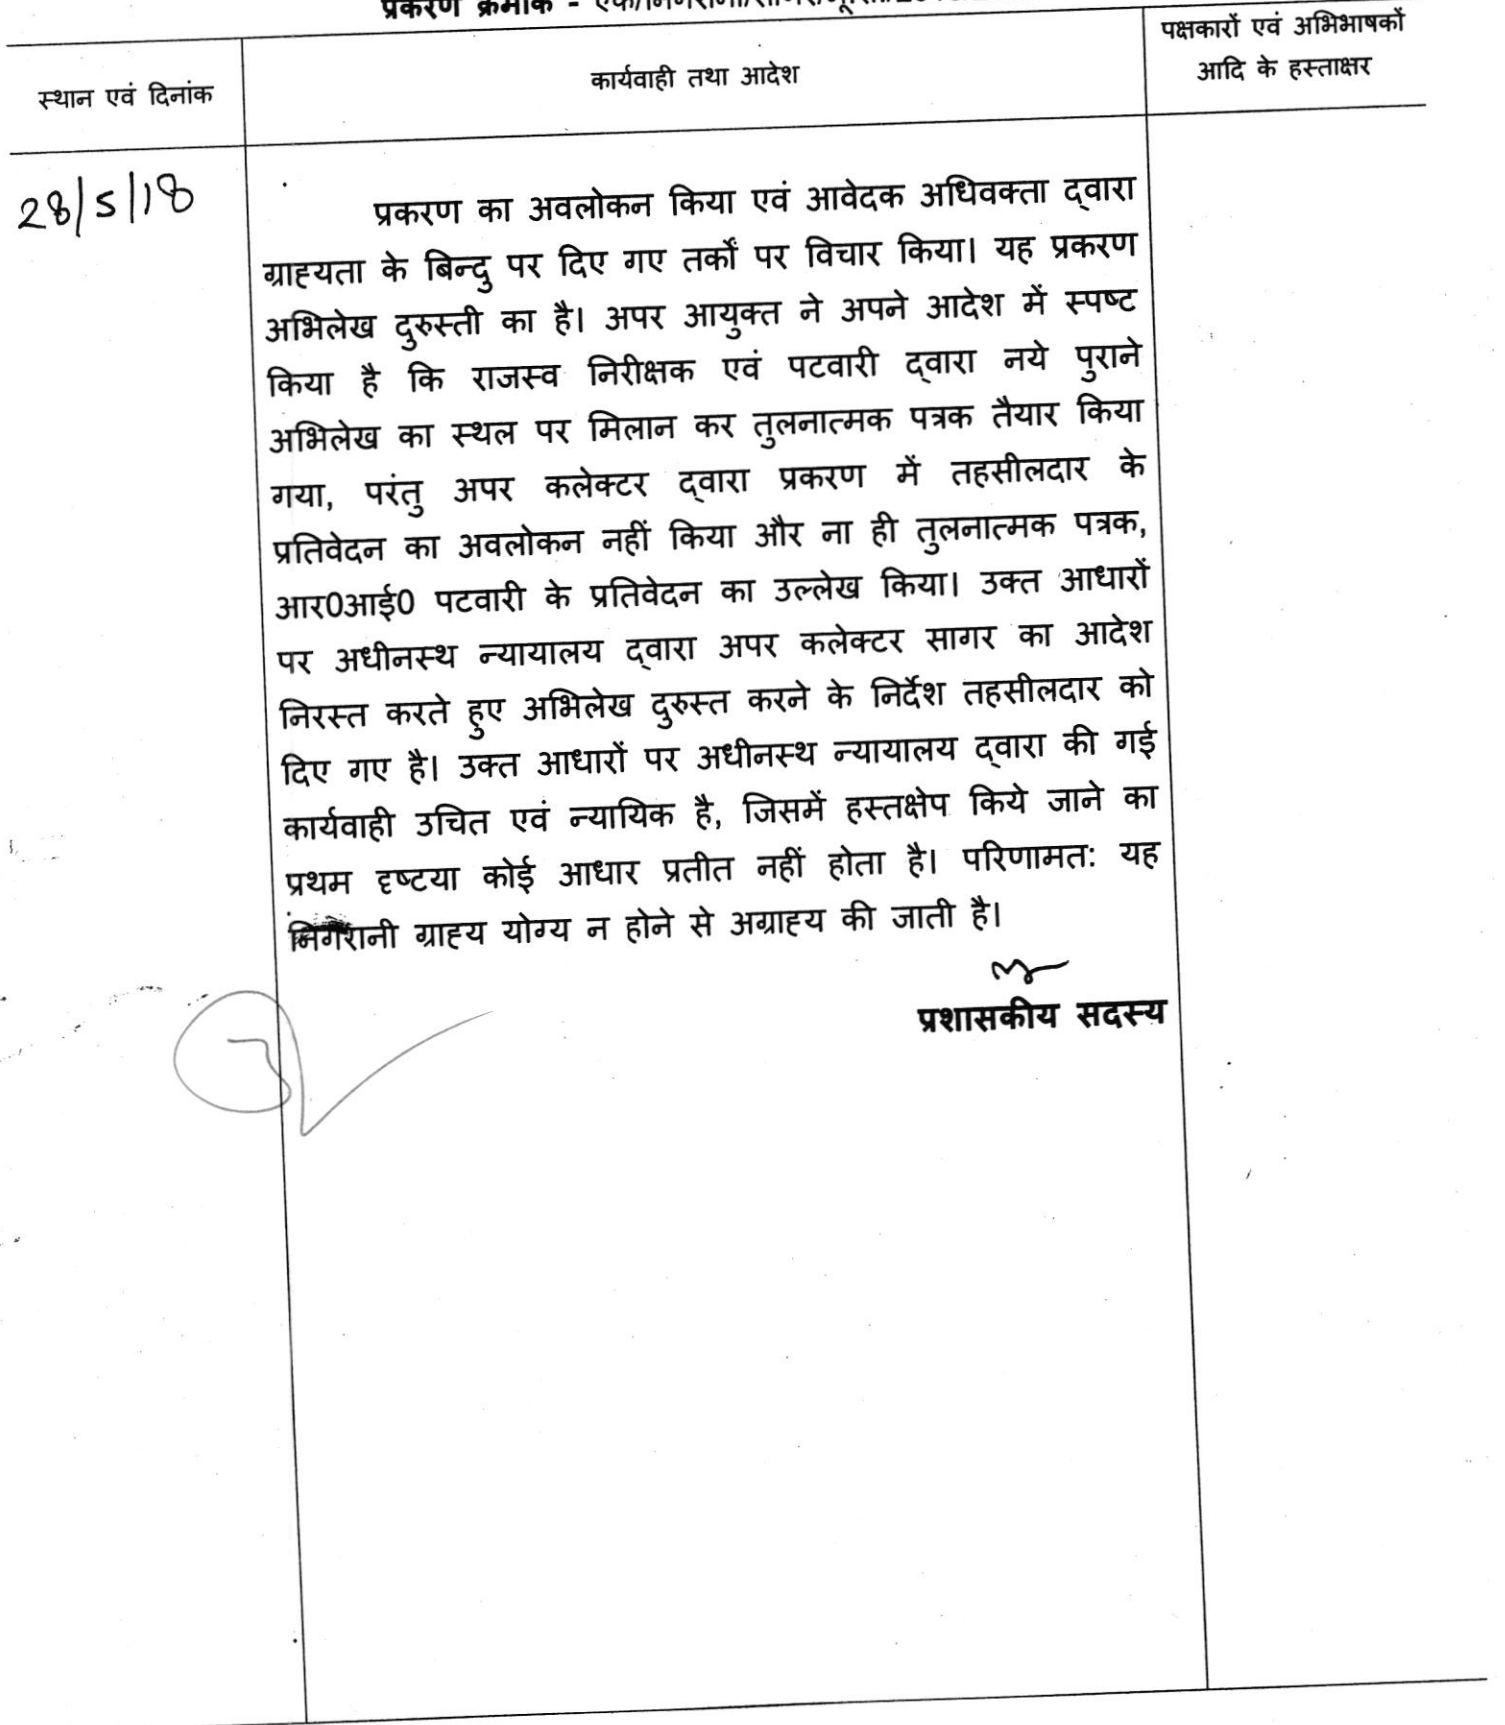 प्रकरण क्रमांक -
पक्षकारों एवं अभिभाषकों
आदि के हस्ताक्षर
स्थान एवं दिनांक
कार्यवाही तथा आदेश
28/5/18
प्रकरण का अवलोकन किया एवं आवेदक अधिवक्ता द्वारा
ग्राह्यता के बिन्दु पर दिए गए तर्कों पर विचार किया। यह प्रकरण
अभिलेख दुरुस्ती का है। अपर आयुक्त ने अपने आदेश में स्पष्ट
किया है कि राजस्व निरीक्षक एवं पटवारी द्वारा नये पुराने
अभिलेख का स्थल पर मिलान कर तुलनात्मक पत्रक तैयार किया
गया, परंतु अपर कलेक्टर द्वारा प्रकरण में तहसीलदार के
प्रतिवेदन का अवलोकन नहीं किया और ना ही तुलनात्मक पत्रक,
आर0आई0 पटवारी के प्रतिवेदन का उल्लेख किया। उक्त आधारों
पर अधीनस्थ न्यायालय द्वारा अपर कलेक्टर सागर का आदेश
निरस्त करते हुए अभिलेख दुरुस्त करने के निर्देश तहसीलदार को
दिए गए है। उक्त आधारों पर अधीनस्थ न्यायालय द्वारा की गई
कार्यवाही उचित एवं न्यायिक है, जिसमें हस्तक्षेप किये जाने का
प्रथम दृष्टया कोई आधार प्रतीत नहीं होता है। परिणामत: यह
निगरानी ग्राह्य योग्य न होने से अग्राह्य की जाती है।
प्रशासकीय सदस्य